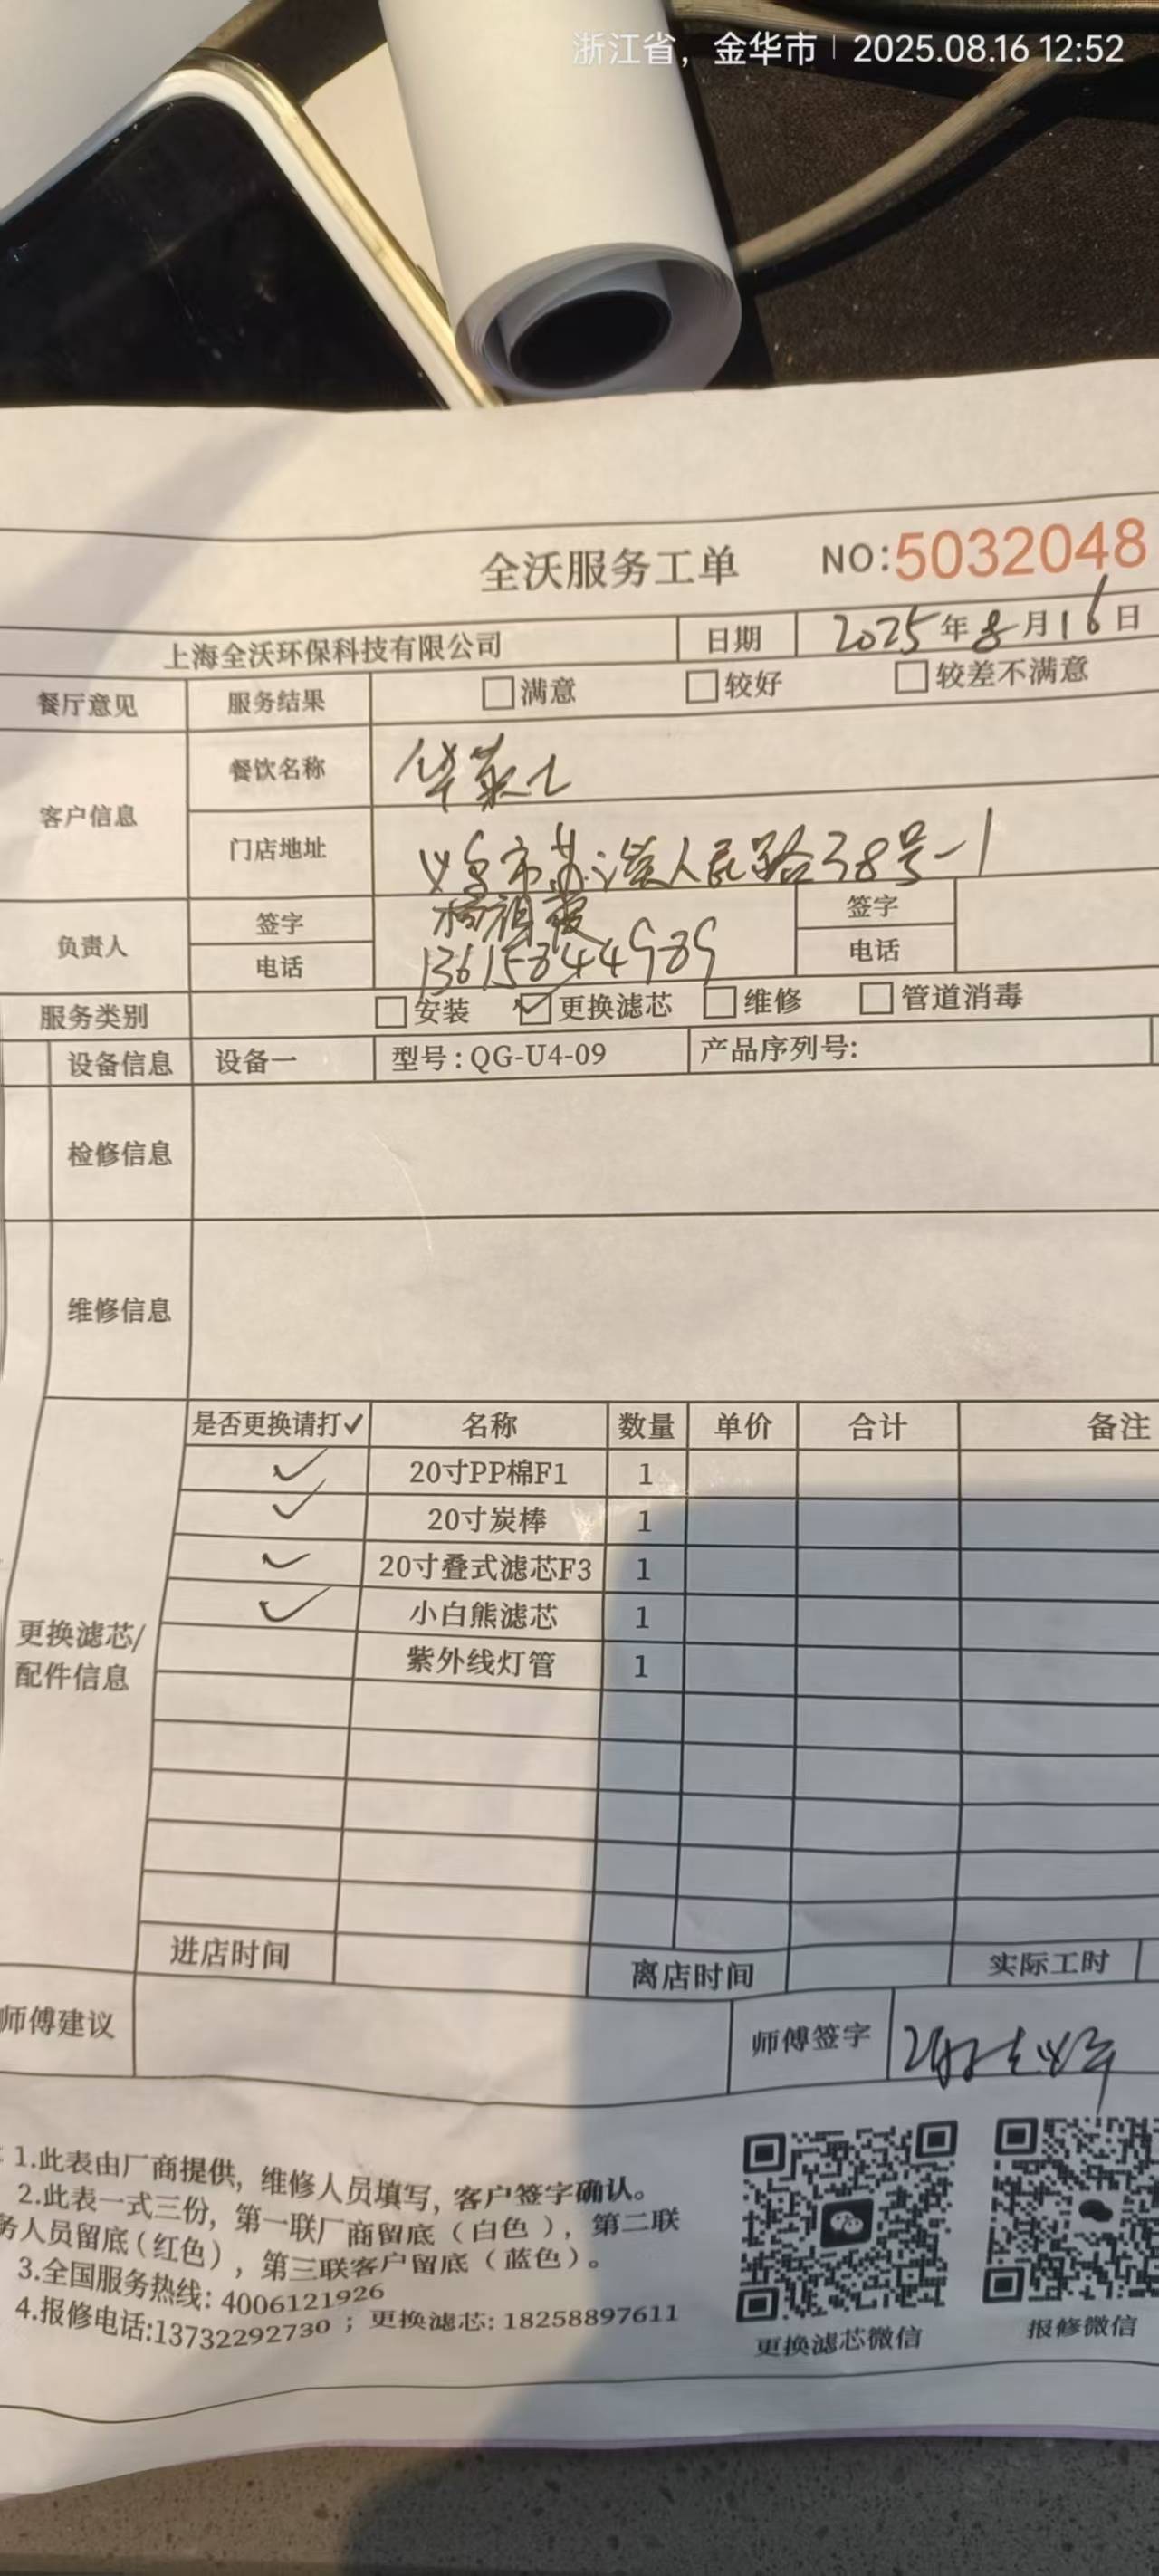 浙江省，金华市 | 2025.08.16 12:52
全沃服务工单 NO:5032048
上海全沃环保科技有限公司 日期 2025年8月16日
餐厅意见 服务结果 □满意 □较好 □较差不满意
客户信息 餐饮名称 华莱士
门店地址 义乌市苏溪人民路38号-1
负责人 签字 杨祖霞 签字
电话 13615844989 电话
服务类别 □安装 ☑更换滤芯 □维修 □管道消毒
设备信息 设备一 型号:QG-U4-09 产品序列号:
检修信息
维修信息
是否更换请打✓ 名称 数量 单价 合计 备注
✓ 20寸PP棉F1 1
✓ 20寸炭棒 1
✓ 20寸叠式滤芯F3 1
✓ 小白熊滤芯 1
紫外线灯管 1
更换滤芯/
配件信息
进店时间 离店时间 实际工时
师傅建议 师傅签字
1.此表由厂商提供，维修人员填写，客户签字确认。
2.此表一式三份，第一联厂商留底（白色），第二联
务人员留底(红色)，第三联客户留底（蓝色）。
3.全国服务热线: 4006121926
4.报修电话:13732292730；更换滤芯: 18258897611
更换滤芯微信 报修微信